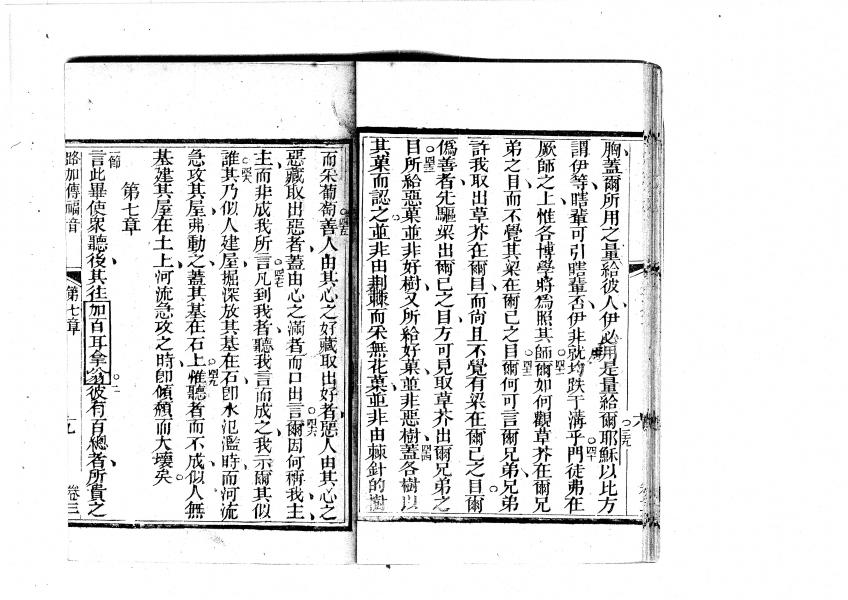 胸蓋爾所用之量給彼人伊必用是量給爾。三九耶穌以比方
謂伊等瞎輩可引瞎輩否伊非就均跌于溝乎。四十門徒弗在
厥師之上惟各博學將為照其師。四一爾如何觀草芥在爾兄
弟之目而不覺其梁在爾已之目。四二爾何可言爾兄弟兄弟
許我取出草芥在爾目而尚且不覺有梁在爾已之目。爾
偽善者先驅梁出爾已之目方可見取草芥出爾兄弟之
目。四三所給惡菓並非好樹又所給好菓並非惡樹。四四蓋各樹以
其菓而認之並非由荆棘而采無花菓並非由棘針的樹
而采葡萄。四五善人由其心之好藏取出好者惡人由其心之
惡藏取出惡者蓋由心之滿者而口出言。四六爾因何稱我主
主而非成我所言。四七凡到我者聽我言而成之我示爾其似
誰。四八其乃似人建屋掘深放其基在石即水氾濫時而河流
急攻其屋弗動之蓋其基在石上。四九惟聽者而不成似人無
基建其屋在土上河流急攻之時即傾頹而大壞矣。
第七章
一節言此畢使眾聽後其往加百耳拿翁。二彼有百總者所貴之
路加傳福音 第七章 九 卷三